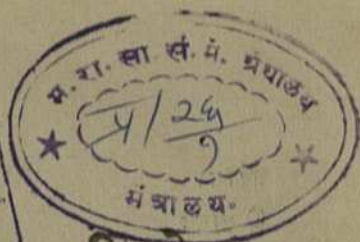 म. रा. सा. सं. मं. ग्रंथालय
प्र/२६
१
मंत्रालय.